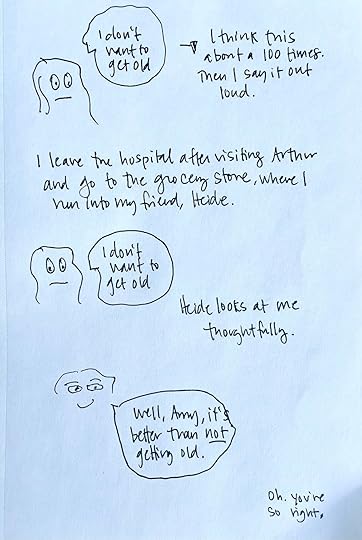 I don't
want to
get old
I think this
about a 100 times.
Then I say it out
loud.
I leave the hospital after visiting Arthur
and go to the grocery store, where I
run into my friend, Heide.
I don't
want to
get old
Heide looks at me
thoughtfully.
Well, Amy, it's
better than not
getting old.
Oh. You're
so right.